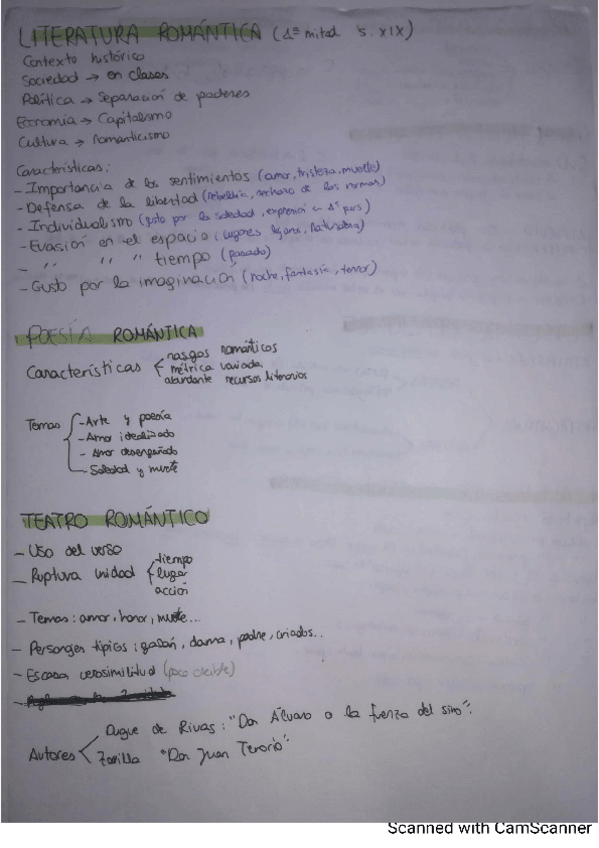 LITERATURA ROMÁNTICA (1ª mitad S. XIX)
Contexto histórico
Sociedad → en clases
Política → Separación de poderes
Economía → Capitalismo
Cultura → romanticismo
Características:
- Importancia de los sentimientos (amor, tristeza, muerte)
- Defensa de la libertad (rebeldía, rechazo de las normas)
- Individualismo (gusto por la soledad, expresión en 1ª pers)
- Evasión en el espacio (lugares lejanos, naturaleza)
- " " " tiempo (pasado)
- Gusto por la imaginación (noche, fantasía, terror)
POESÍA ROMÁNTICA
Características
rasgos románticos
métrica variada
abundante recursos literarios
Temas
- Arte y poesía
- Amor idealizado
- Amor desengañado
- Soledad y muerte
TEATRO ROMÁNTICO
- Uso del verso
- Ruptura unidad
tiempo
lugar
acción
- Temas: amor, honor, muerte...
- Personajes típicos: galán, dama, padre, criados..
- Escasa verosimilitud (poco creíble)
Autores
Duque de Rivas: "Don Álvaro o la fuerza del sino".
Zorrilla "Don Juan Tenorio"
Scanned with CamScanner